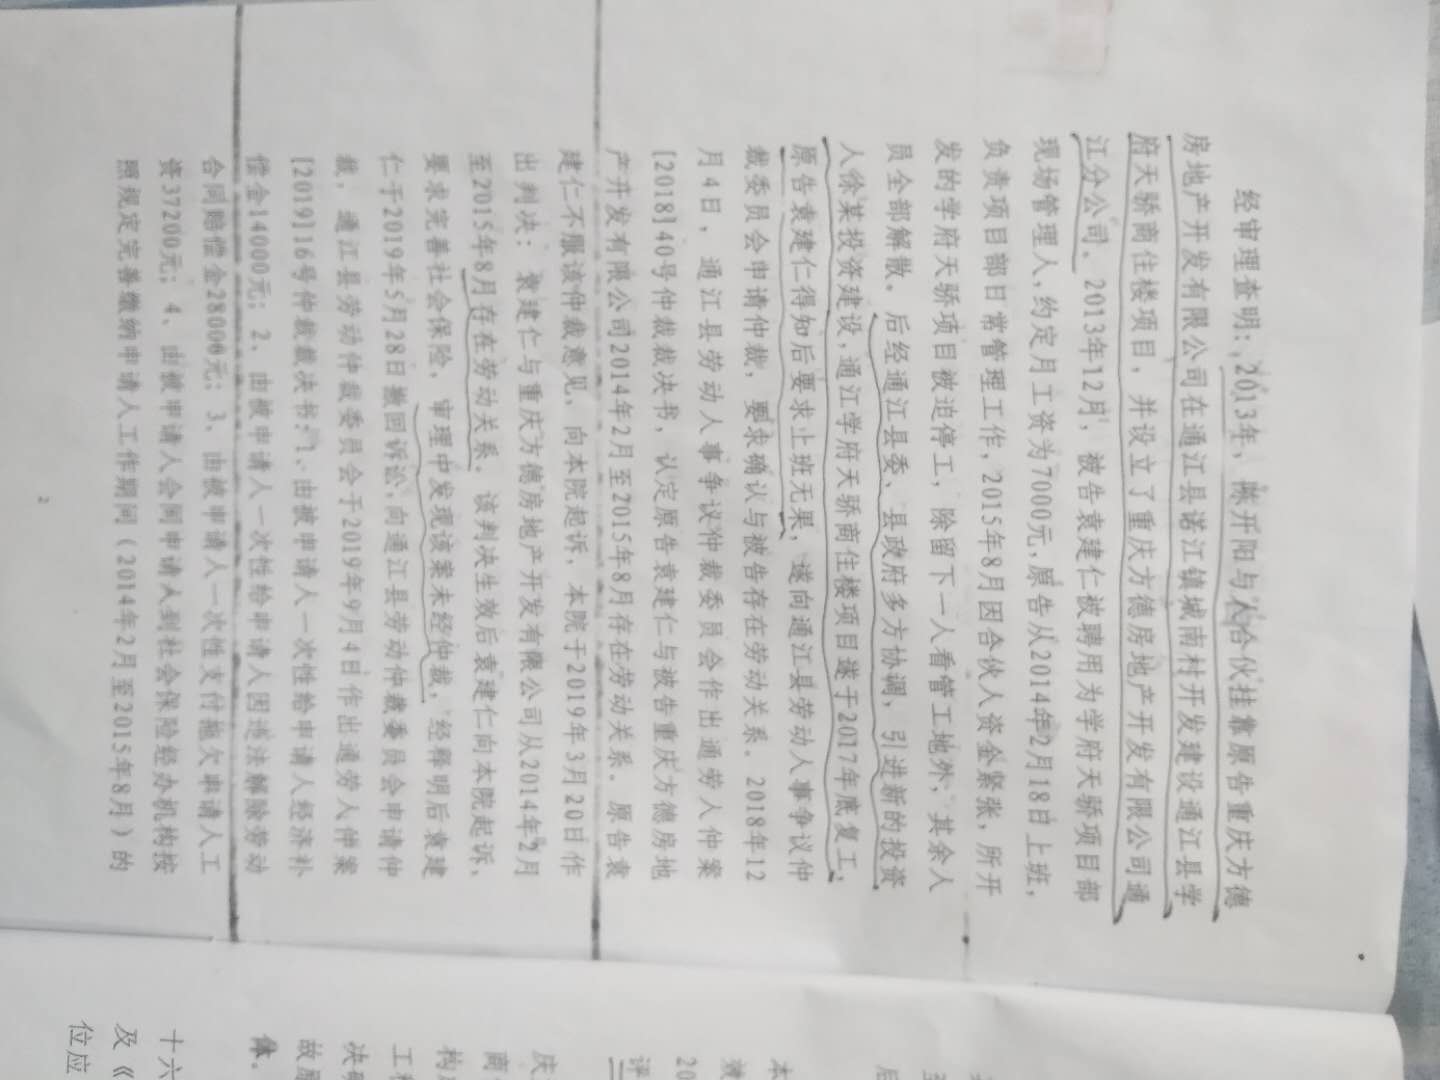 经审理查明：2013年，陈开阳与人合伙挂靠原告重庆方德
房地产开发有限公司在通江县诺江镇城南村开发建设通江县学
府天骄商住楼项目，并设立了重庆方德房地产开发有限公司通
江分公司。2013年12月，被告袁建仁被聘用为学府天骄项目部
现场管理人，约定月工资为7000元，原告从2014年2月18日上班，
负责项目部日常管理工作，2015年8月因合伙人资金紧张，所开
发的学府天骄项目被迫停工，除留下一人看管工地外，其余人
员全部解散。后经通江县委、县政府多方协调，引进新的投资
人徐某投资建设，通江学府天骄商住楼项目遂于2017年底复工，
原告袁建仁得知后要求上班无果，遂向通江县劳动人事争议仲
裁委员会申请仲裁，要求确认与被告存在劳动关系。2018年12
月4日，通江县劳动人事争议仲裁委员会作出通劳人仲案
[2018]40号仲裁裁决书，认定原告袁建仁与被告重庆方德房地
产开发有限公司2014年2月至2015年8月存在劳动关系。原告袁
建仁不服该仲裁意见，向本院起诉，本院于2019年3月20日作
出判决：袁建仁与重庆方德房地产开发有限公司从2014年2月
至2015年8月存在劳动关系。该判决生效后袁建仁向本院起诉，
要求完善社会保险，审理中发现该案未经仲裁，经释明后袁建
仁于2019年5月28日撤回诉讼，向通江县劳动仲裁委员会申请仲
裁，通江县劳动仲裁委员会于2019年9月4日作出通劳人仲案
[2019]16号仲裁裁决书：1、由被申请人一次性给申请人经济补
偿金14000元；2、由被申请人一次性给申请人因违法解除劳动
合同赔偿金28000元；3、由被申请人一次性支付拖欠申请人工
资37200元；4、由被申请人会同申请人到社会保险经办机构按
照规定完善缴纳申请人工作期间（2014年2月至2015年8月）的
2
后
本
效
20
评
庆
商
构
工
决
故
体。
十六
及《
位应